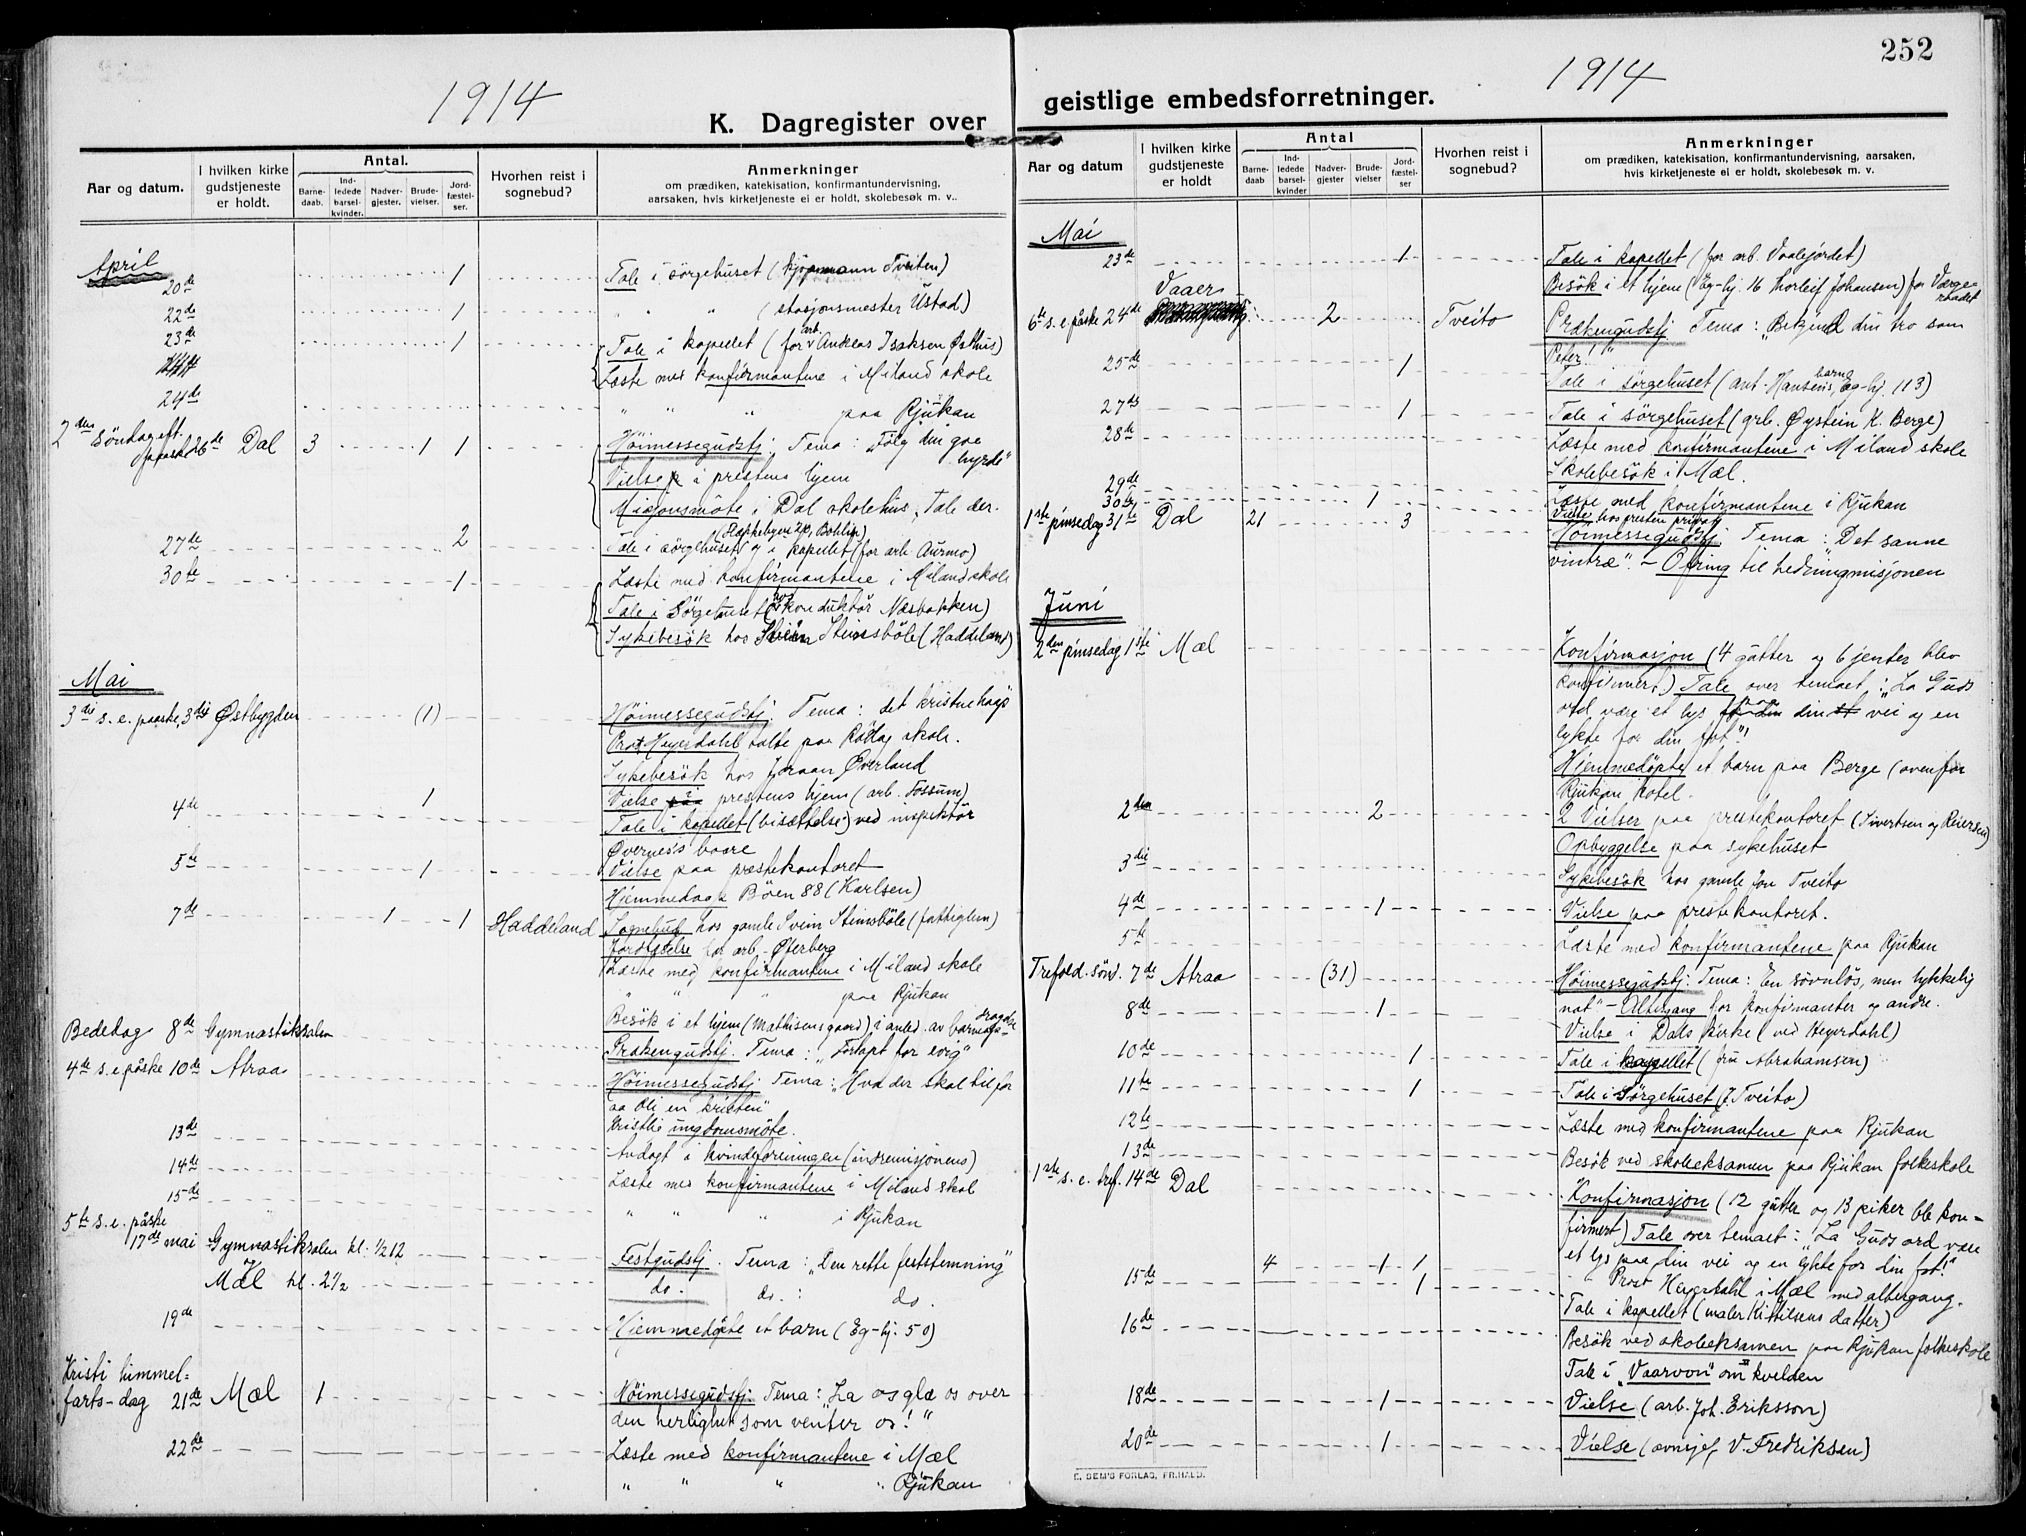 252
1914
K. Dagregister over
Aar og datum.
I hvilken kirke gudstjeneste er holdt.
Antal.
Barne-daab.
Ind-ledede barsel-kvinder.
Nadver-gjester.
Brude-vielser.
Jord-fæstel-ser.
Hvorhen reist i sognebud?
Anmerkninger
om prædiken, katekisation, konfirmantundervisning,
aarsaken, hvis kirketjeneste ei er holdt, skolebesøk m. v..
April
20de 1 Tale i sörgehuset (kjøpmann Tveiten)
22de 1 " " (stasjonsmester Ustad)
23de 1 Tale i kapellet (for arb. Andreas Isaksen Østhus)
Læste med konfirmantene i Miland skole
24de " " " paa Rjukan
2den söndag eft. paaske 26de Dal 3 1 1 Høimessegudstj. Tema: "Følg din gode hyrde"
Vielse i prestens hjem
Misjonsmöte i Dal skolehus, Tale der.
27de 2 Tale i sörgehuset og i kapellet (for arb. Aurmo)
30te 1 Læste med konfirmantene i Miland skole
Tale i Sörgehuset (hos konduktör Næsbakken)
Sykebesök hos Svein Steinsböle (Haddeland)
Mai
3die s. e. paaske, 3die Østbygden (1) Høimessegudstj. Tema: det kristne haap
Prost Heyerdahl talte paa Rollag skole.
Sykebesök hos Joraan Øverland
4de 1 Vielse i prestens hjem (arb. Fossum)
Tale i kapellet (bisættelse) ved inspektör
Øvernes's baare
5te 1 Vielse paa prestekontoret
Hjemmedaab Böen 88 (Karlsen)
7de 1 1 Haddeland Sognebud hos gamle Svein Steinsböle (fattiglem)
Jordfæstelse for arb. Østerberg
Læste med konfirmantene i Miland skole
" " " paa Rjukan
Besök i et hjem (Mathisensgaard) i anled. av barnets
Bededag 8de Gymnastiksalen Prækengudstj. Tema: "Fortapt for evig"
4de s. e. påske 10de Atraa Høimessegudstj. Tema: "Hva der skal til for
aa bli en kristen"
Kristlig ungdomsmöte.
13de Andagt i kvindeforeningen (indremisjonens)
14de Læste med konfirmantene i Miland skol
15de " " " i Rjukan
5te s. e. påske
17de mai Gymnastiksalen kl. 1/2 12 Festgudstj. Tema: "Den rette feststemning"
og Mæl kl. 2 1/2 do. do.: do.
19de Hjemmedøpte et barn (Eg-hj. 50)
Kristi himmel=
farts-dag 21de Mæl 1 Høimessegudstj: Tema: "La os glæ os over
den herlighet som venter os!"
22de Læste med konfirmantene i Mæl
" " " " Rjukan
geistlige embedsforretninger.
1914
Aar og datum
I hvilken kirke gudstjeneste er holdt
Antal
Barne-daab
Ind-ledede barsel-kvinder
Nadver-gjester
Brude-vielser
Jord-fæstel-ser
Hvorhen reist i sognebud?
Anmerkninger
om prædiken, katekisation, konfirmantundervisning, aarsaken,
hvis kirketjeneste ei er holdt, skolebesøk m. v.
Mai
23de 1 Tale i kapellet (for arb. Vaalejordet)
Besök i et hjem (Eg-hj. 16 Thorleif Johansen) for Værge-
raadet
6te s. e. påske 24de Vaaer 2 Tveito Prækengudstj. Tema: "Bekjend din tro som
Peter!"
25de 1 Tale i sörgehuset (ant. Hansens barn, Eg-hj. 113)
27de 1 Tale i sörgehuset (grb. Øystein K. Berge)
28de Læste med konfirmantene i Miland skole
Skolebesök i Mæl.
29de Læste med konfirmantene i Rjukan
30te 1 Vielse hos presten privat
1ste pinsedag 31te Dal 21 3 Høimessegudstj. Tema: "Det sanne
vintræ". - Ofring til hedningmisjonen
Juni
2den pinsedag 1ste Mæl Konfirmasjon (4 gutter og 6 jenter blev
konfirmert.) Tale over temaet: "La Guds
ord være et lys paa din vei og en
lykte for din fot"!
Hjemmedöpte et barn paa Berge (ovenfor
Rjukan hotel.
2den 2 2 Vielser paa prestekontoret (Sivertsen og Reiersen)
Opbyggelse paa sykehuset
3die Sykebesök hos gamle Jon Tveito
4de 1 Vielse paa prestekontoret.
5te Læste med konfirmantene paa Rjukan
Trefold. sönd. 7de Atraa (31) Høimessegudstj: Tema: En sövnlös, men lykkelig
nat" - Altergang for konfirmanter og andre.
8de 1 Vielse i Dals kirke (ved Heyerdahl)
10de 1 Tale i kapellet (fru Abrahamsen)
11te 1 Tale i Sörgehuset (J. Tveito)
12te Læste med konfirmantene paa Rjukan
13de Besök ved skoleeksamen paa Rjukan folkeskole
1ste s. e. tref. 14de Dal Konfirmasjon (12 gutter og 13 piker ble kon=
firmert) Tale over temaet: "La Guds ord være
4 1 1 et lys paa din vei og en lykte for din fot!"
Prost Heyerdahl i Mæl med altergang.
15de 1 Tale i kapellet (maler Kittilsens datter)
16de Besök ved skoleeksamen paa Rjukan folkeskole
Tale i "Vaarvon" om kvelden
18de 1 Vielse (arb. Joh. Eriksson)
20de 1 Vielse (ovnsjef V. Fredriksen)
E. SEM'S FORLAG, FR.HALD.